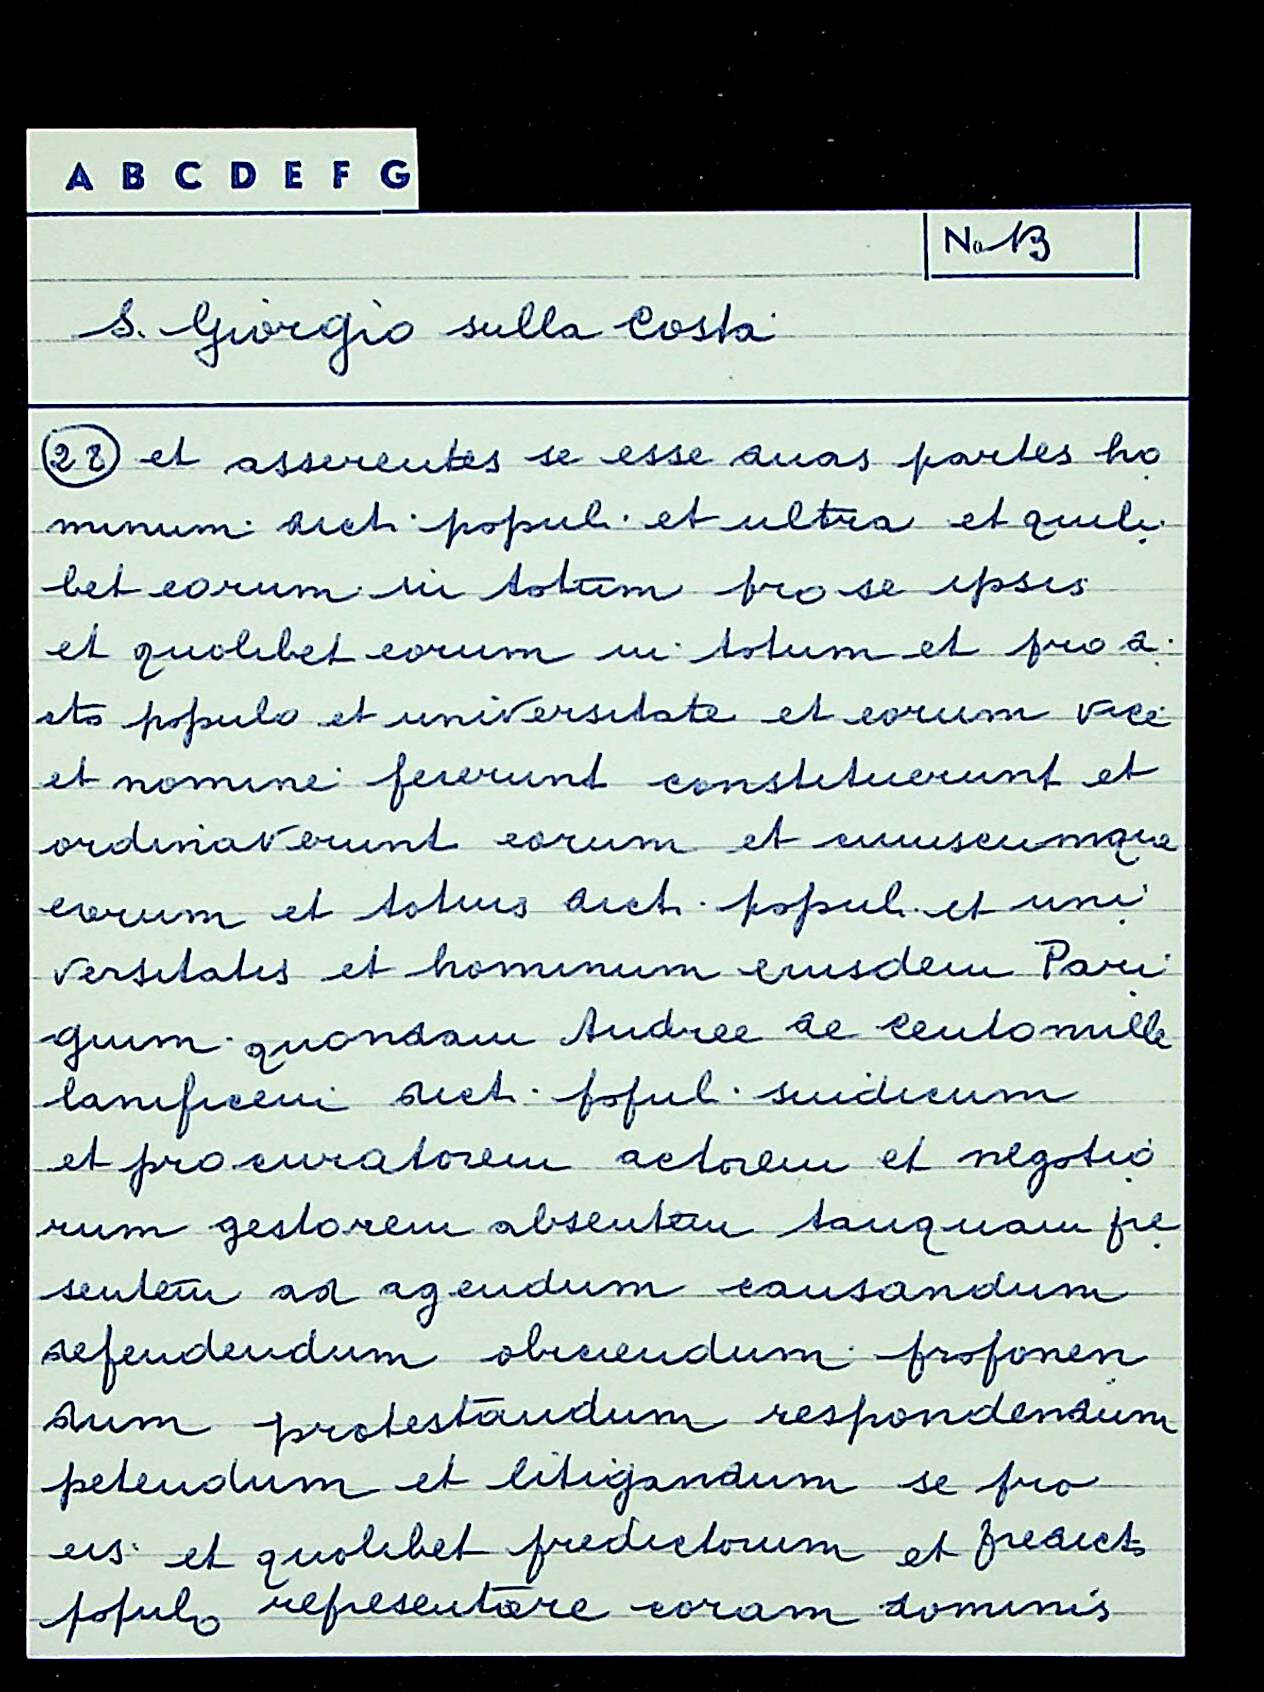 A B C D E F G
No 13
S. Giorgio sulla Costa
28 et asserentes se esse duas partes ho
minum dicti populi et ultra et quili
bet eorum in totum pro se ipsis
et quolibet eorum in totum et pro di
cto populo et universitate et eorum vice
et nomine fecerunt constituerunt et
ordinaverunt eorum et cuiuscumque
eorum et totius dicti populi et uni
versitatis et hominum eiusdem Pari
gium quondam Andree de Centomille
lanificem dicti populi sindicum
et procuratorem actorem et negotio
rum gestorem absentem tanquam pre
sentem ad agendum causandum
defendendum obiciendum proponen
dum protestandum respondendum
petendum et litigandum se pro
eis et quolibet predictorum et predicto
populo representare coram dominis